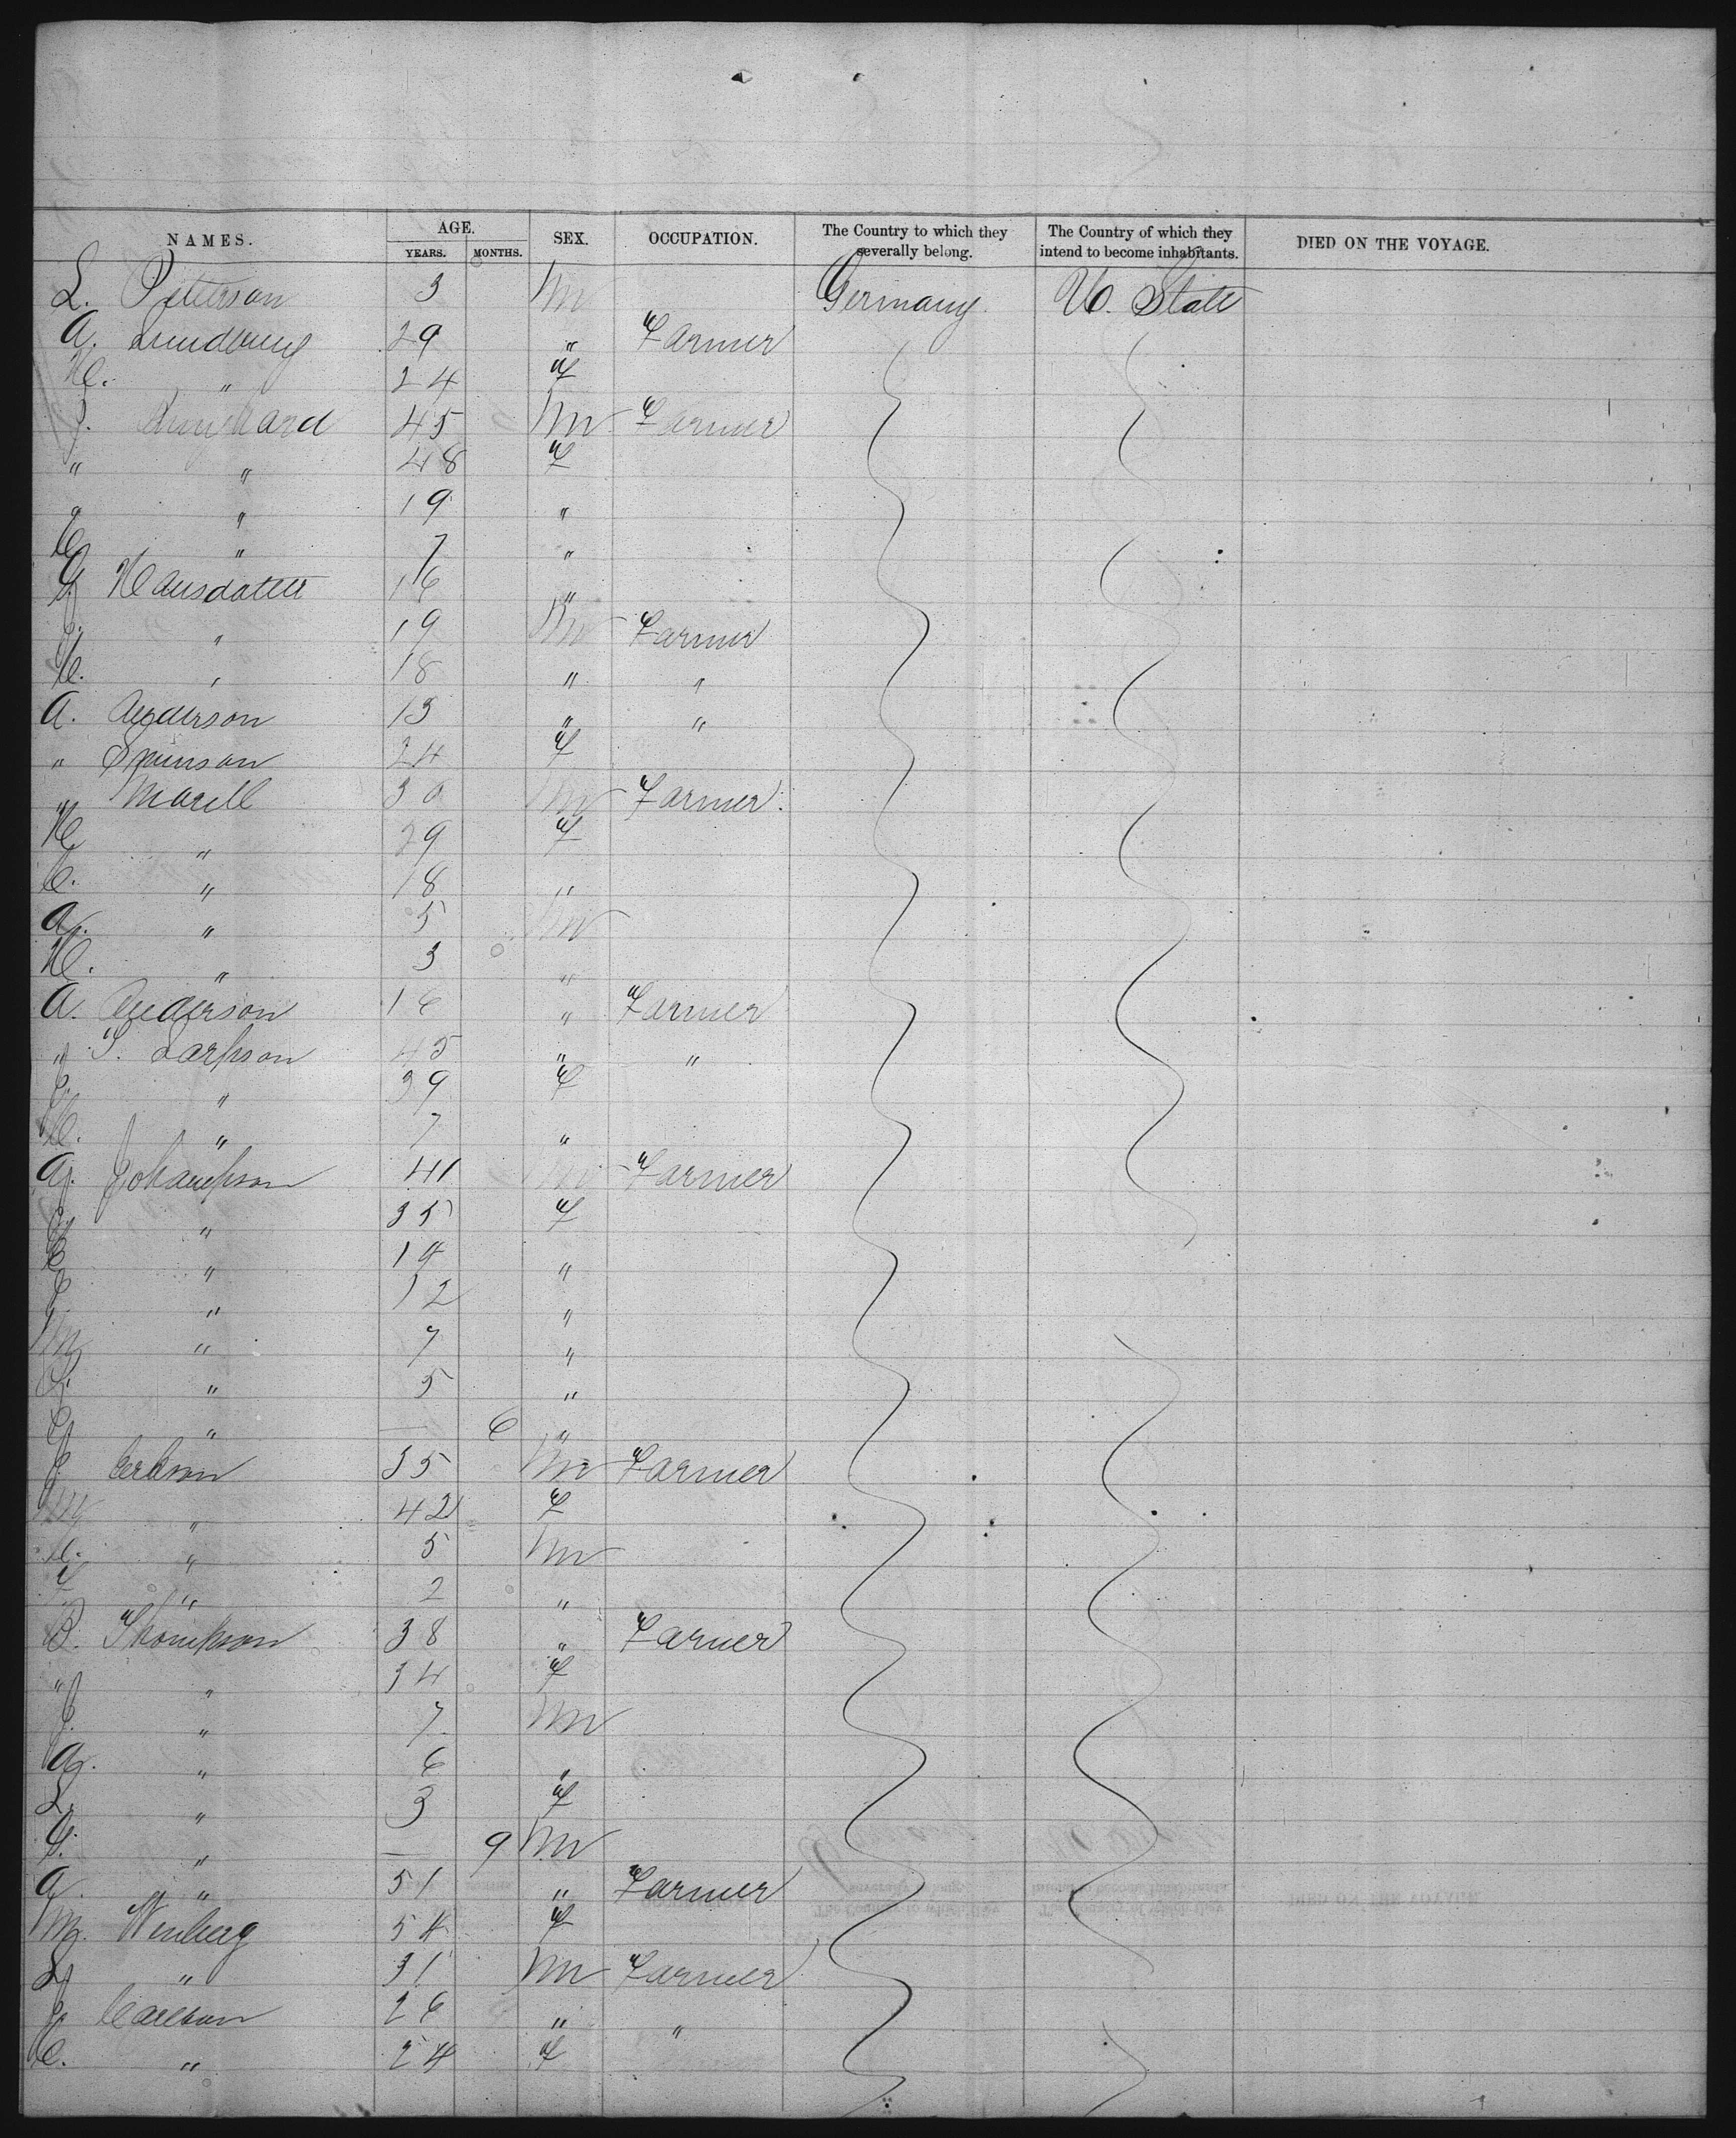 NAMES. AGE. SEX. OCCUPATION. The Country to which they severally belong. The Country of which they intend to become inhabitants. DIED ON THE VOYAGE.
YEARS. MONTHS.
L. Peterson 3 M Germany U. State
A. Lundberg 29 " Farmer
H. " 24 F
J. 45 M Farmer
" " 48 F
" " 19 "
C " 7 "
Hansdotter 16 "
" 19 M Farmer
H. " 18 " "
A. Anderson 13 " "
" 24 F
" Morell 30 M Farmer
H " 29 F
C. " 18 "
A. " 5 M
H. " 3 "
A. Anderson 16 " Farmer
" Larsson 45 " "
" 39 F
H. " 7 "
A. Johansson 41 M Farmer
" 35 F
C " 14 "
" 12 "
M " 7 "
" 5 "
" — 6 "
Erikson 35 M Farmer
" 42 F
" 5 M
" 2 "
B. Thompson 38 " Farmer
" " 34 F
J. " 7 M
A. " 6 "
L. " 3 F
" — 9 M
A " 51 " Farmer
M. Wenberg 54 F
" 31 M Farmer
J Carlson 26 " "
C. " 24 F